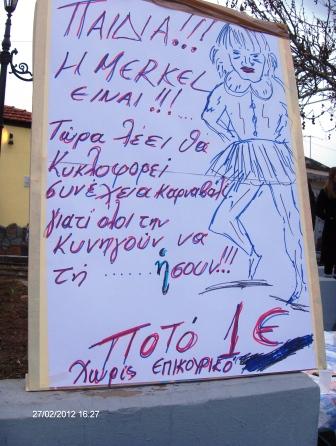 ΠΑΙΔΙΑ!!!
Η MERKEL
ΕΙΝΑΙ!!!...
Τώρα λέει θα
Κυκλοφορεί
συνέχεια καρναβάλι
γιατί όλοι την
κυνηγούν να
τη ...... ήσουν!!!
ΠΟΤΟ 1€
Χωρίς ΕΠΙΚΟΥΡΙΚΟ
27/02/2012 16:27